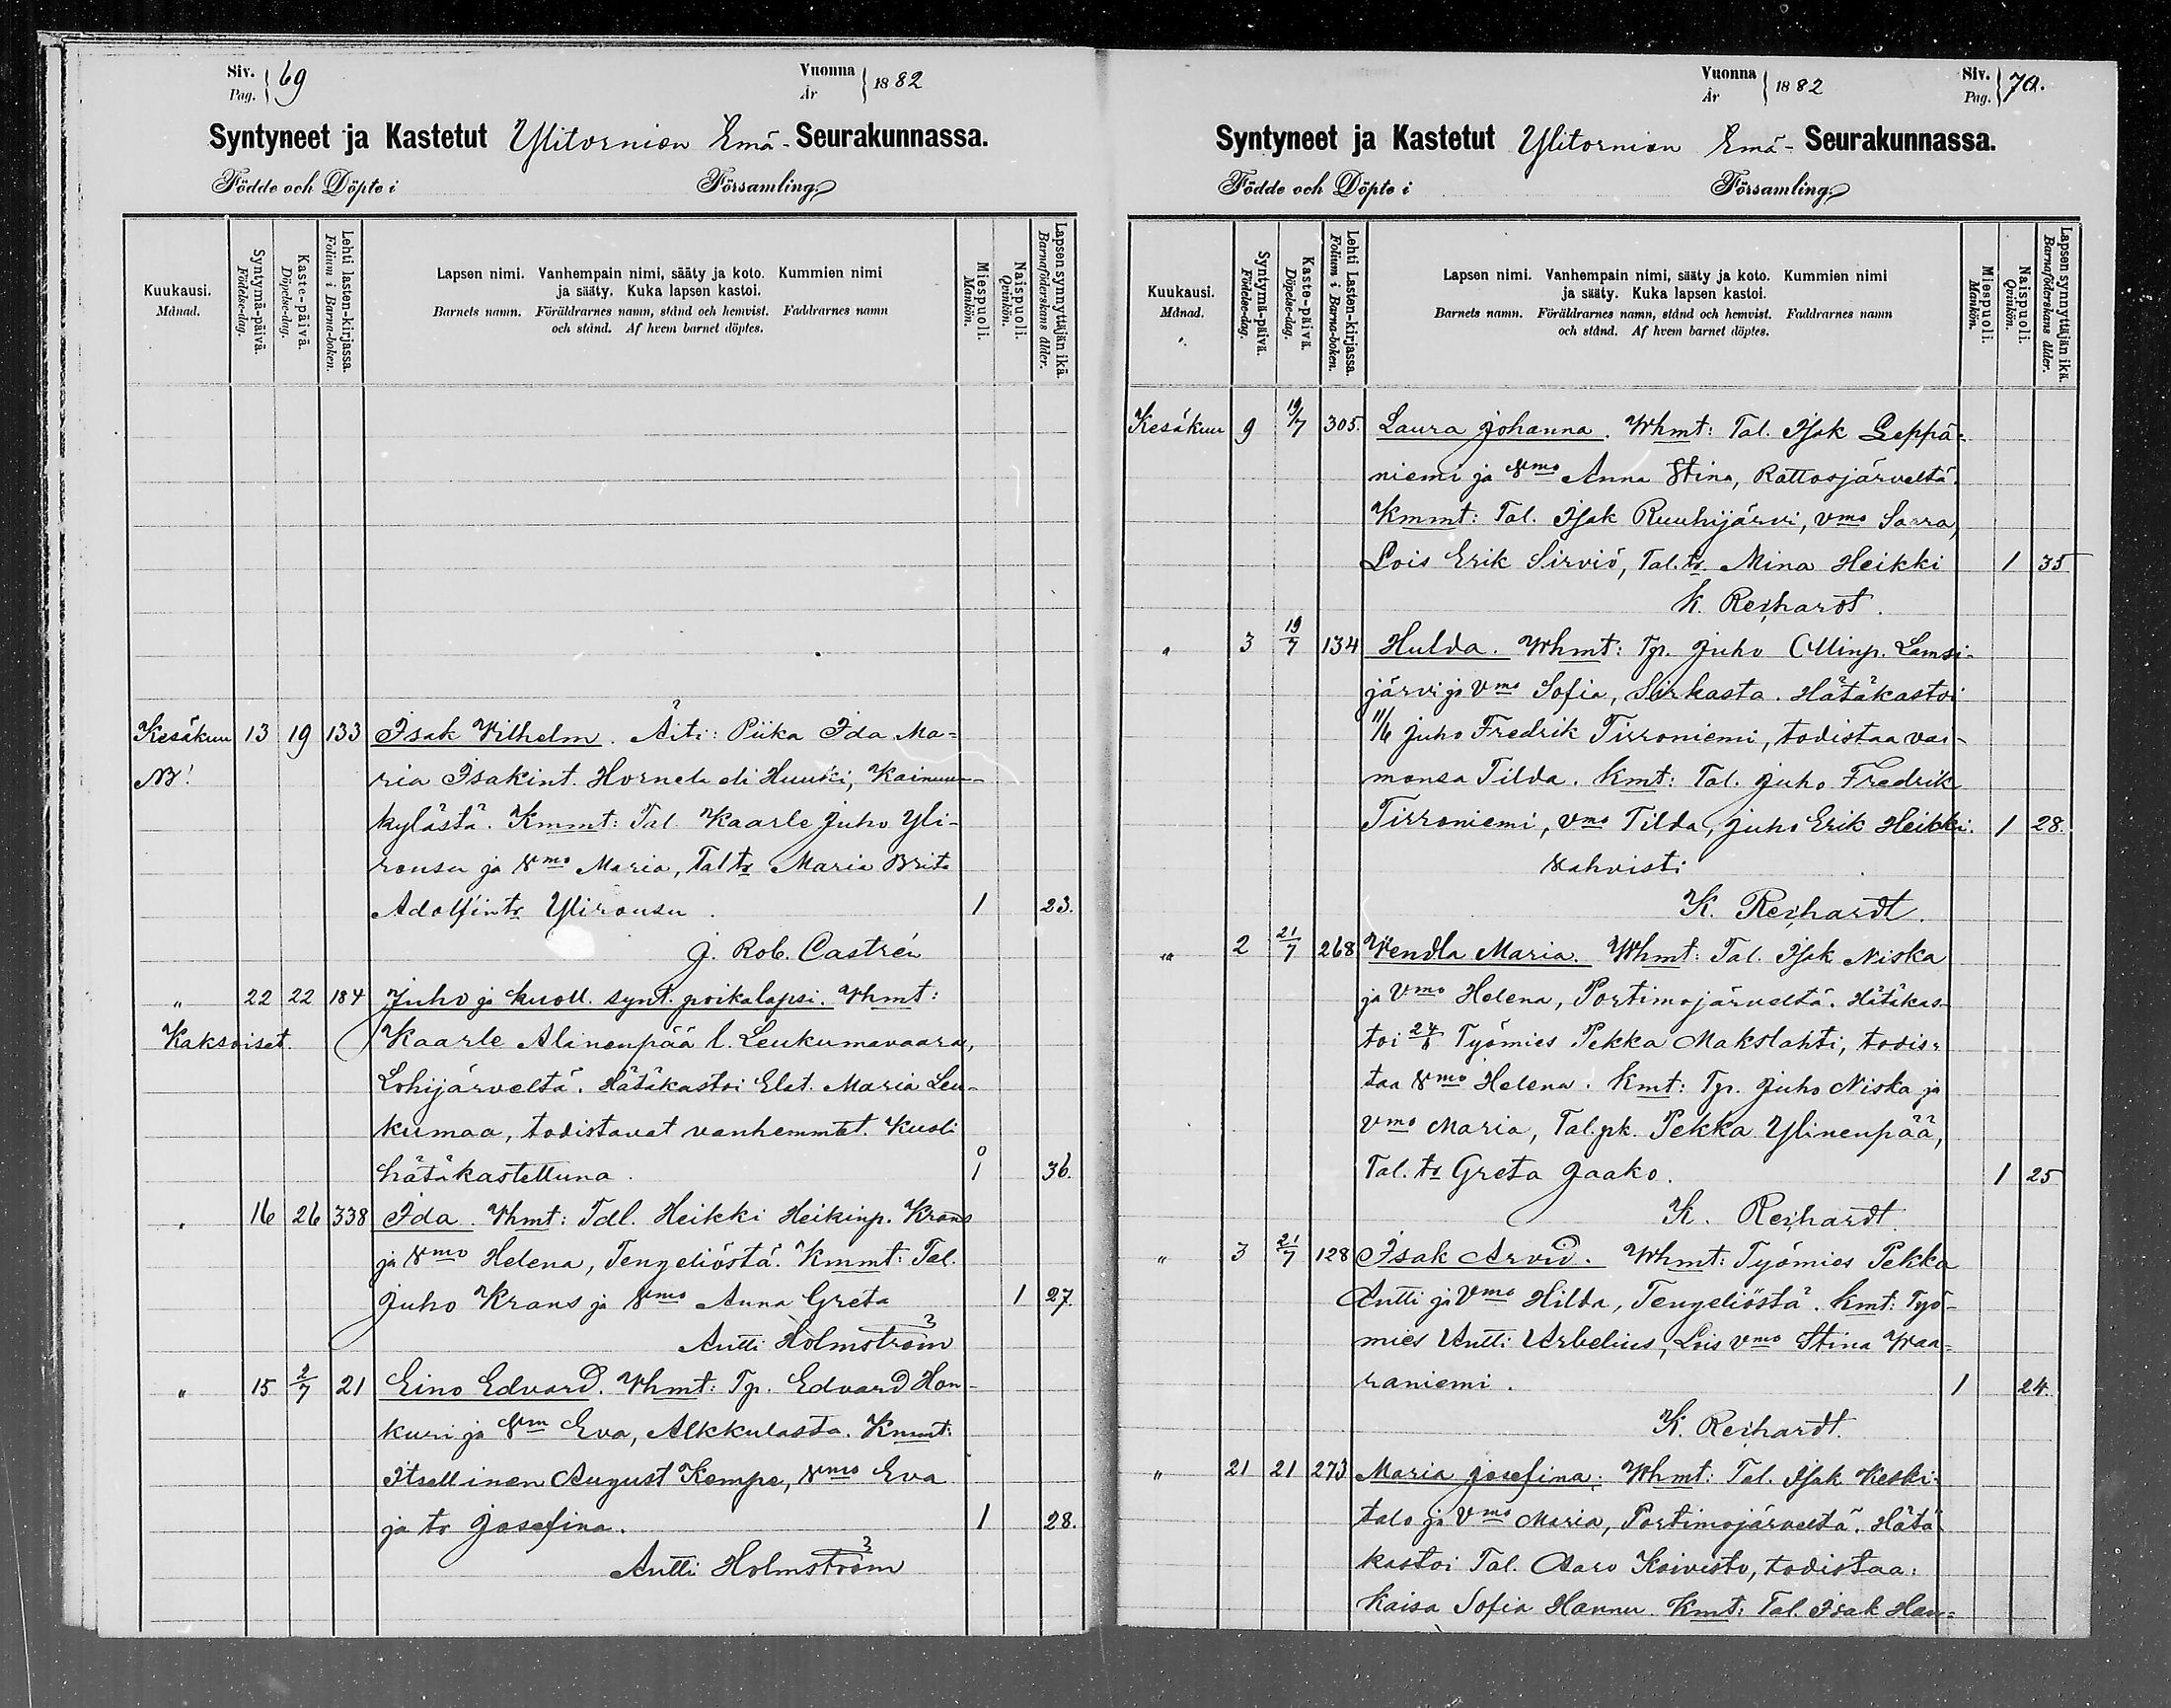 Siv. Pag. 69
Vuonna År 1882
Syntyneet ja Kastetut Ylitornion Emä-Seurakunnassa.
Födde och Döpte i Församling
Kuukausi. Månad.
Syntymä-päivä. Födelse-dag.
Kaste-päivä. Döpelse-dag.
Lehti lasten-kirjassa. Folium i Barna-boken.
Lapsen nimi. Vanhempain nimi, sääty ja koto. Kummien nimi
ja sääty. Kuka lapsen kastoi.
Barnets namn. Föräldrarnes namn, stånd och hemvist. Faddrarnes namn
och stånd. Af hvem barnet döptes.
Miespuoli. Mankön.
Naispuoli. Qvinkön.
Lapsen synnyttäjän ikä. Barnaföderskans ålder.
Kesäkuu 13 19 133 Isak Vilhelm. Äiti: Piika Ida Ma=
NB! ria Isakint. Horneta eli Huuki, Kainuun-
kylästä. Kmmt: Tal. Kaarle Juho Yli-
rousu ja vmo Maria, Tal tr Maria Brita
Adolfintr Ylirousu. 1 23.
J. Rob. Castrén
" 22 22 184 Juho ja kuoll. synt. poikalapsi. Vhmt:
Kaksoiset. Kaarle Alinenpää l. Leukumavaara,
Lohijärveltä. Hätäkastoi Elat. Maria Leu-
kumaa, todistavat vanhemmat. Kuoli
hätäkastettuna. 0 1 36.
" 16 26 338 Ida. Vhmt: Tdl. Heikki Heikinp. Krans
ja vmo Helena, Tengeliöstä. Kmmt: Tal.
Juho Krans ja vmo Anna Greta 1 27.
Antti Holmström
" 15 2/7 21 Eino Edvard. Vhmt: Tp. Edvard Hon-
kuri ja vm Eva, Alkkulasta. Kmmt:
Itsellinen August Kempe, vmo Eva
ja tr Josefina. 1 28.
Antti Holmström
Vuonna År 1882
Siv. Pag. 70.
Syntyneet ja Kastetut Ylitornion Emä-Seurakunnassa.
Födde och Döpte i Församling
Kuukausi. Månad.
Syntymä-päivä. Födelse-dag.
Kaste-päivä. Döpelse-dag.
Lehti Lasten-kirjassa. Folium i Barna-boken.
Lapsen nimi. Vanhempain nimi, sääty ja koto. Kummien nimi
ja sääty. Kuka lapsen kastoi.
Barnets namn. Föräldrarnes namn, stånd och hemvist. Faddrarnes namn
och stånd. Af hvem barnet döptes.
Miespuoli. Mankön.
Naispuoli. Qvinkön.
Lapsen synnyttäjän ikä. Barnaföderskans ålder.
Kesäkuu 9 19/7 305. Laura Johanna. Whmt: Tal. Isak Leppä=
niemi ja vmo Anna Stina, Rattosjärveltä.
Kmmt: Tal. Isak Ruuhijärvi, vmo Saara,
Lois Erik Sirviö, Tal. tr. Mina Heikki 1 35
K. Reihardt.
" 3 19/7 134 Hulda. Whmt: Tp. Juho Ollinp. Lamsi-
järvi ja vmo Sofia, Sirkasta. Hätäkastoi
11/6 Juho Fredrik Tirroniemi, todistaa vai-
monsa Tilda. Kmt: Tal. Juho Fredrik
Tirroniemi, vmo Tilda, Juho Erik Heikki. 1 28.
vahvisti
K. Reihardt.
" 2 21/7 268 Wendla Maria. Whmt: Tal. Isak Niska
ja vmo Helena, Portimojärveltä. Hätäkas-
toi 24/6 Työmies Pekka Makslahti, todis-
taa vmo Helena. Kmt: Tp. Juho Niska ja
vmo Maria, Tal.pk. Pekka Ylinenpää,
Tal. tr Greta Jaako. 1 25
K. Reihardt.
" 3 21/7 128 Isak Arvid. Whmt: Työmies Pekka
Antti ja vmo Hilda, Tengeliöstä. Kmt: Työ-
mies Antti Arbelius, Lois vmo Stina Waa-
raniemi. 1 24.
K. Reihardt.
" 21 21 273 Maria Josefina. Whmt: Tal. Isak Keski-
talo ja vmo Maria, Portimojärveltä. Hätä
kastoi Tal. Aaro Koivisto, todistaa:
Kaisa Sofia Hannu. Kmt: Tal. Isak Han=